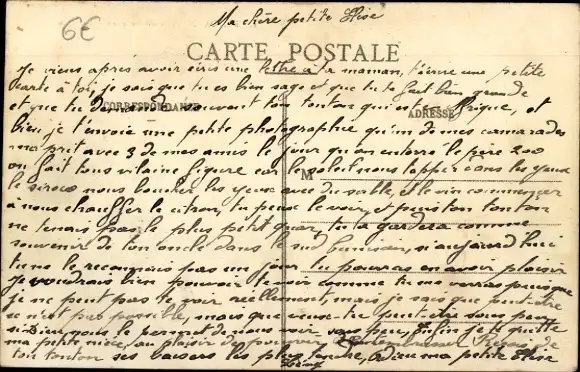 6€
Ma chère petite Elise
CARTE POSTALE
Je viens après avoir écris une lettre à ta maman, t'écrire une petite
carte à toi, je sais que tu es bien sage et que tu te fait bien grande
et que tu demande souvent ton tonton qui est en Afrique, et
CORRESPONDANCE
ADRESSE
bien je t'envoie une petite photographie qu'un de mes camarades
ma prit avec 3 de mes amis le jour qu'on enterré le père 200
on fait tous vilaine figure car le soleil nous tapper dans les yeux
M
le siroco nous boucher les yeux avec du sable, et le vin commencer
à nous chauffer le citron, tu peux le voir, et puis ton tonton
ne tenais pas le plus petit quar, tu la gardera comme
souvenir de ton oncle dans le sud tunisien, si aujourd'hui
tu ne le reconnais pas un jour tu pourras en avoir plaisir
Je voudrais bien pouvoir te voir comme tu me verras puisque
je ne peut pas te voir réellement mais je sais que peut être
se n'est pas possible, mais que veux-tu peut-être sous peu
si Dieu nous le permet de nous voir sous peu, enfin je te quitte
ma petite nièce, au plaisir de pouvoir Reçois de
ton tonton ses baisers les plus tendre, adieu ma petite Elise